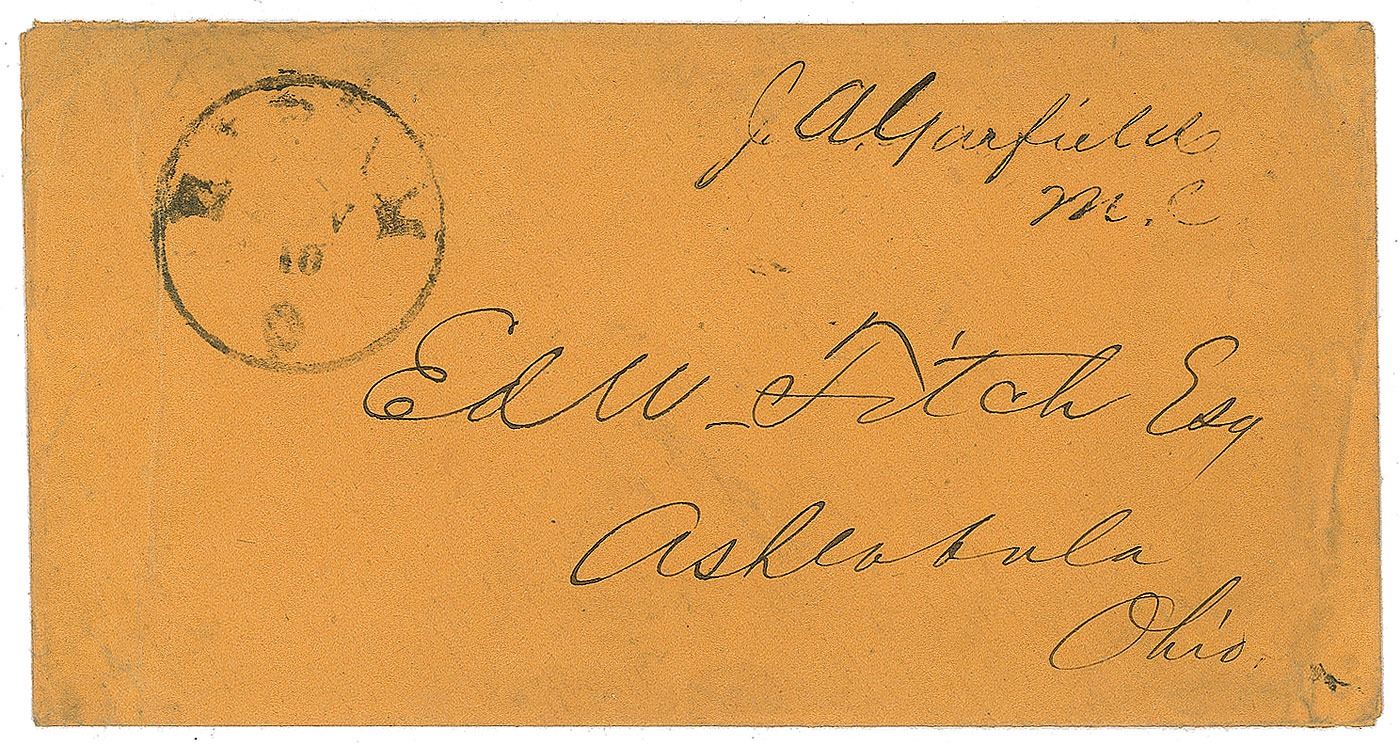 10
J. A. Garfield
M. C
Ed W - Fitch Esq
Ashtabula
Ohio.